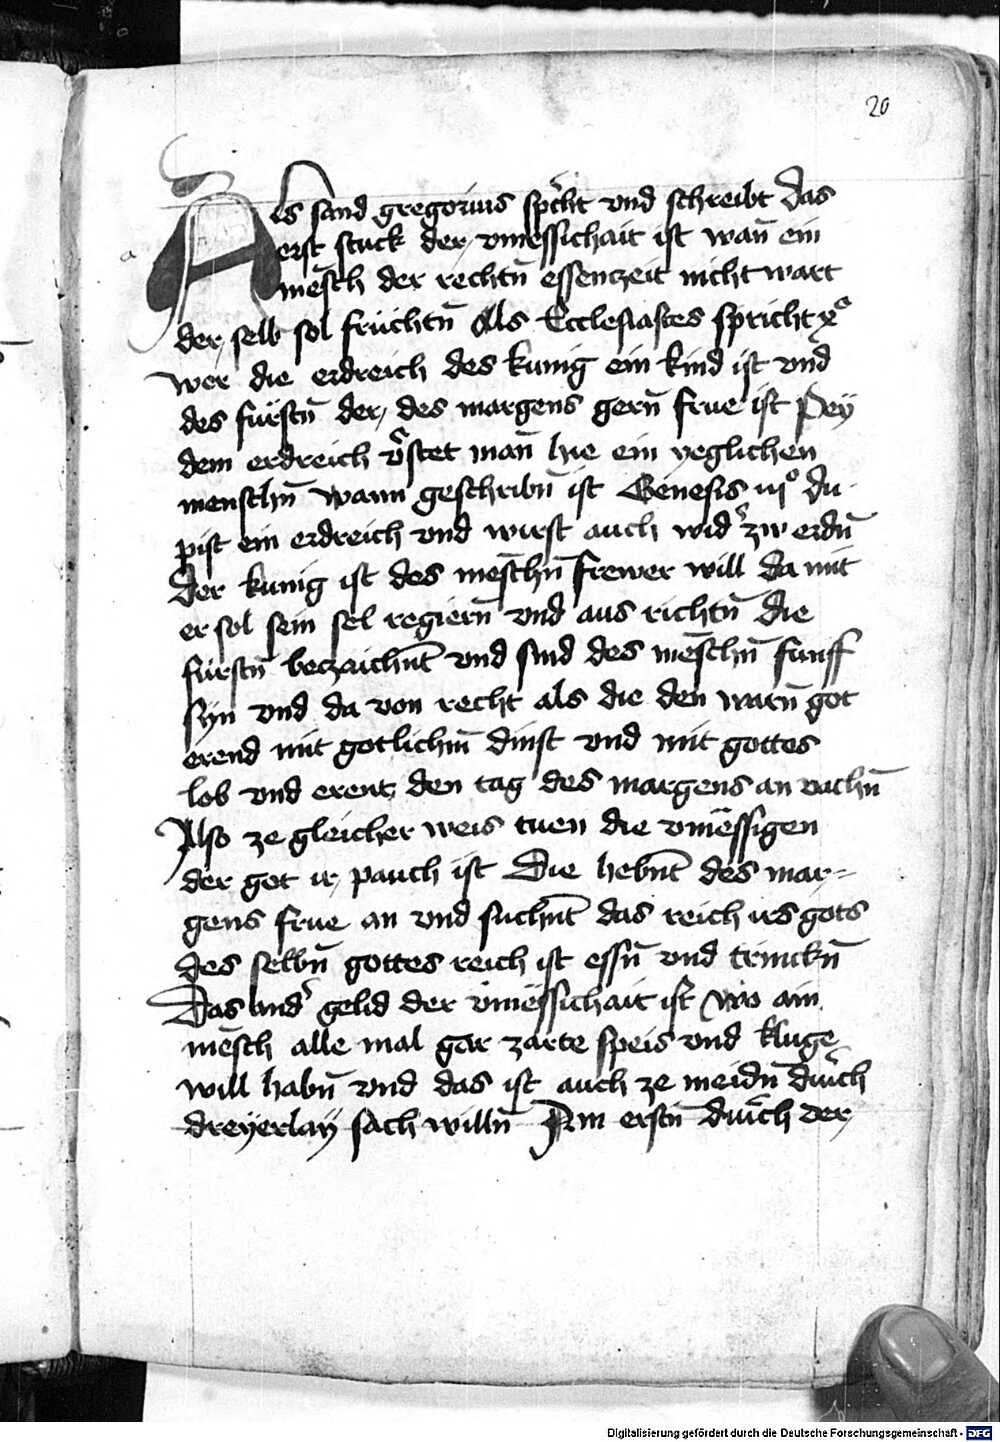 20
Als sand gregorius sprcht vnd schreibt das
erst stuck der vnmessichait ist wan̄ ein
mēsch der rechtn̄ essenczeit nicht wart
der selb sol früchtn̄ Als Ecclesiastes spricht xº
wer die erdreich des kunig ein kind ist vnd
des fürstn̄ der des margens gern̄ frue ist Pey
dem erdreich v̄stet man̄ hie ein yeglichen
menschn̄ wann geschribn̄ ist Genesis iijº du
pist ein erdreich vnd wirst auch wid zw erdn̄
Der kunig ist des mēschn̄ frewer will da mit
er sol sein sel regiern̄ vnd aus richtn̄ die
fürstn̄ beczaichn̄t vnd sind des mēschn̄ funff
syn vnd da von recht als die den warn̄ got
erend mit gotlichm̄ dinst vnd mit gottes
lob vnd erent den tag des margens an vachn̄
Also ze gleicher weis tuen die vnmëssigen
der got ir pauch ist Die hebn̄t des mar=
gens frue an vnd suchn̄t das reich irs gots
des selbn̄ gottes reich ist essn̄ vnd trinckn̄
Das and gelid der vnmëssichait ist wo ain
mēsch alle mal gar zarte speis vnd kluge
will habn̄ vnd das ist auch ze meidn̄ durch
dreyerlay sach willn̄ Am erstn̄ durch der
Digitalisierung gefördert durch die Deutsche Forschungsgemeinschaft - DFG